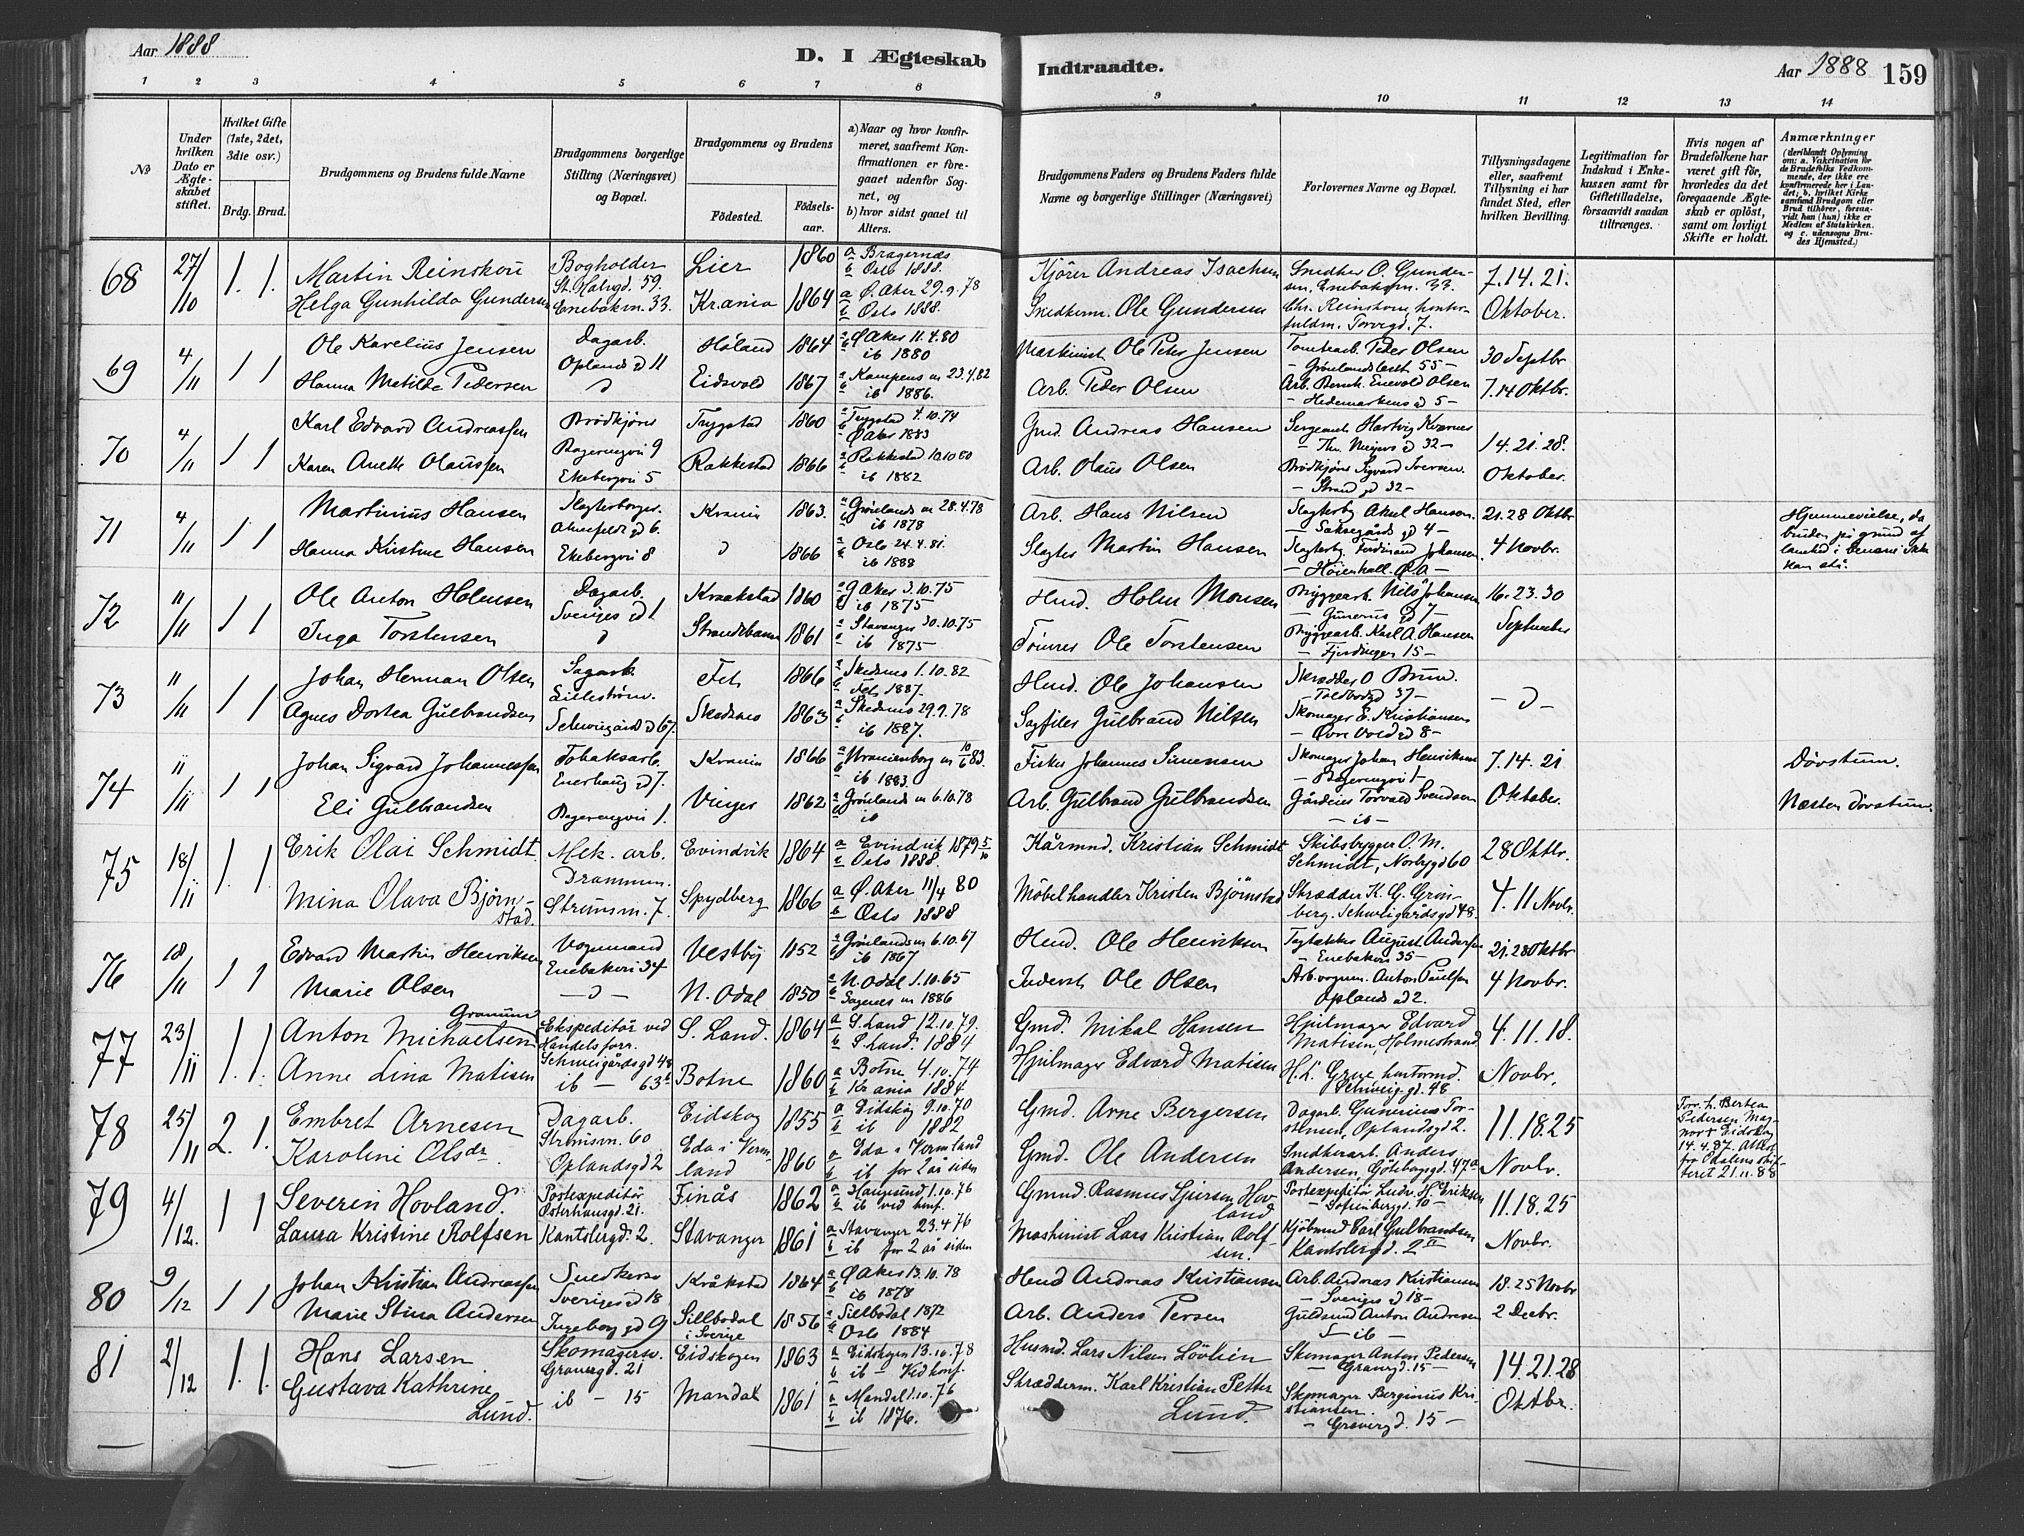 Aar 1888
D. I Ægteskab
Indtraadte.
Aar 1888
159
1 2 3 4 5 6 7 8 9 10 11 12 13 14
No
Under hvilken Dato er Ægteskabet stiftet.
Hvilket Gifte (1ste, 2det, 3die osv.)
Brdg. Brud.
Brudgommens og Brudens fulde Navne
Brudgommens borgerlige Stilling (Næringsvei) og Bopæl.
Brudgommens og Brudens
Födested.
Födselsaar.
a) Naar og hvor konfirmeret, saafremt Konfirmationen er foregaaet udenfor Sognet, og
b) hvor sidst gaaet til Alters.
Brudgommens Faders og Brudens Faders fulde Navne og borgerlige Stillinger (Næringsvei)
Forlovernes Navne og Bopæl.
Tillysningsdagene eller, saafremt Tillysning ei har fundet Sted, efter hvilken Bevilling.
Legitimation for Indskud i Enkekassen samt for Giftetilladelse, forsaavidt saadan tiltrænges.
Hvis nogen af Brudefolkene har været gift för, hvorledes da det foregaaende Ægteskab er oplöst, samt om lovligt Skifte er holdt.
Anmærkninger
(deriblandt Oplysning om: a. Vakcination för de Brudefolks Vedkommende, der ikke ere konfirmerede her i Landet; b. hvilket Kirkesamfund Brudgom eller Brud tilhörer, forsaavidt han (hun) ikke er Medlem af Statskirken, og c. udensogns Brudes Hjemsted.)
68 27/10 1. 1. Martin Reinskou Bogholder St. Halvgd. 59. Lier 1860 a Bragernæs b Oslo 1888. Kjörer Andreas Isachsen Snedker O. Gundersen, Enebakvn. 33. 7. 14. 21.
Helga Gunhilda Gundersen Enebakvn. 33. Krania 1864 a Ø. Aker 29.9.78 b Oslo 1888. Snedkerm. Ole Gundersen Chr. Reinskou, kontorfuldm. Torvgd. 7. Oktober.
69 4/11 1 1 Ole Karelius Jensen Dagarb. Oplands gd 11 Höland 1864 a Ø Aker 11.4.80 b ib 1880 Maskinist Ole Peter Jensen Tomtearb. Peder Olsen – Grönlandsleret 55 – 30 Septbr.
Hanna Matilde Pedersen d Eidsvold 1867 a Kampens m 23.4.82 b ib 1886. Arb. Peder Olsen Arb. Bernh. Enevold Olsen – Hedemarkens gd 5 – 7. 14 Oktbr.
70 4/11 1 1 Karl Edvard Andreassen Brödkjörer Vaalerengvei 9 Trygstad 1860 a Trygstad 4.10.74 b Ø Aker 1883 Gmd. Andreas Hansen Sergeant Hartvig Kværnes – Thv. Meyers gd 32 – 14. 21. 28.
Karen Anette Olaussen Ekebergvei 5 Rakkestad 1866 a Rakkestad 10.10 80 b ib 1882 Arb. Olaus Olsen Brödkjörer Sigvard Iversen. – Strand gd 32 – Oktober.
71 4/11 1 1 Martinius Hansen Slagterborger. Ahnefeldt gd 6. Krania 1863. a Grönlands m 28.4.78 b ib 1878 Arb. Hans Nilsen Slagterby Aksel Hansen. – Saksegårds gd 4 – 21. 28 Oktbr
Hanna Kristine Hansen Ekebergvei 8 d 1866 a Oslo 24.4.81. b ib 1888 Slagter Martin Hansen Slagterby. Ferdinand Johansen – Höienhall. Ø. A – 4 Novbr. Hjemmevielse, da bruden på grund af lamhed i benene ikke kan stå.
72 11/11 1 1 Ole Anton Holmsen Dagarb. Sveriges gd 1 Kraakstad 1860 a Ø Aker 3.10.75 b ib 1875 Hmd. Holm Monsen Bryggearb. Nils Johansen – Gunerius gd 7 – 16. 23. 30
Inga Torstensen d Strandebarm 1861 a Stavanger 30.10.75 b ib 1875 Tömmer Ole Torstensen Bryggearb. Karl A. Hansen – Fjerdingen 15 – September
73 11/11 1 1 Johan Herman Olsen Sagarb. Lilleström. Fet 1866 a Skedsmo 1.10.82 b Fet 1887. Hmd. Ole Johansen Skrædder O Brun. – Toldbodgd 37 – – d –
Agnes Dortea Gulbrandsen Schweigård gd 67. Skedsmo 1863 a Skedsmo 29.9.78 b ib 1887. Sagfiler Gulbrand Nilsen Skomager E. Kristiansen – Övre Vold gd 8 –
74 11/11 1 1 Johan Sigvard Johannessen Tobaksarb. Enerhaug gd 7. Krania 1866 a Uranienborg m 10/6 83. b ib 1883. Fisker Johannes Simensen Skomager Johan Henriksen – Vaalerengvei 1 – 7. 14. 21 Dövstum.
Eli Gulbrandsen Vaalerengvei 1. Vinger 1862 a Grönlands m 6.10.78 b ib Arb. Gulbrand Gulbrandsen Gårdeier Torvald Svendsen – ib – Oktober. Næsten dövstum.
75 18/11 1. 1. Erik Olai Schmidt Mek. arb. Drammen. Evindvik 1864 a Evindvik 1879 5/10 b Oslo 1888. Kårmnd. Kristian Schmidt Skibsbygger O. M. Schmidt, Norbygd 60 28 Oktbr.
Mina Olava Björnstad Strömsvn. 7. Spydberg 1866 a Ø. Aker 11/4 80 b Oslo 1888 Möbelhandler Kristen Björnstad Skrædder K. G. Grönberg. Schweigårdsgd 48. 4. 11 Novbr.
76 18/11 1 1 Edvard Martin Henriksen Vognmand Enebakvei 34 Vestby 1852 a Grönlands m 6.10.67 b ib 1867 Hmd. Ole Henriksen Tagtækker August Andersen – Enebakvei 35 – 21. 28 Oktbr
Marie Olsen – d – N. Odal 1850 a N. Odal 1.10.65 b Sagenes m 1886 Inderst Ole Olsen Arb. vognm. Anton Paulsen Opland gd 2. 4 Novbr.
77 23/11 1. 1. Anton Michaelsen Granum Ekspeditör ved Handelsforr. Schweigårdsgd 48 S. Land. 1864 a S. Land 12.10.79. b S. Land. 1884 Gmd. Mikal Hansen Hjulmager Edvard Matisen, Holmestrand 4. 11. 18.
Anne Lina Matisen ib – 63 Botne 1860 a Botne 4.10.74 b Krania 1884. Hjulmager Edvard Matisen H. L. Grue, kontormd. Schweig.gd. 48 Novbr.
78 25/11 2. 1. Embret Arnesen Dagarb. Strömsvn. 60 Eidskog 1855 a Eidskog 9.10.70 b ib 1882 Gmd. Arne Bergersen Dagarb. Gunerius Torstensen, Oplandsgd 2. 11. 18. 25 Forr. h. Bertea Pedersen Magnor i Eidskog 14.4.87. Attest fra Odalens skifteret 21.11.88
Karoline Olsdr Oplandsgd 2 Eda i Vermland 1860 a Eda i Vermland b ib for 2 år siden Gmd. Ole Andersen Snedkerarb. Anders Andersen, Göteborggd. 47a Novbr.
79 4/12. 1 1 Severin Hovland. Postexpeditör Österhausgd. 21. Finås 1862 a Haugesund 1.10.76 b ib ved konf. Gmnd. Rasmus Sjursen Hovland Postexpeditör Ludv. H. Eriksen – Sofienberggd. 10 – 11. 18. 25
Laura Kristine Rolfsen Kantslergd. 2. Stavanger 1861 a Stavanger 23.4.76 b ib for 2 år siden Maskinist Lars Kristian Rolfsen. Kjöbmnd Carl Gulbrandsen Kantslergd. 2 IV Novbr.
80 9/12 1 1 Johan Kristian Andreassen Snedkersv Sveriges gd 18 Kråkstad 1864 a Ø Aker 13.10.78 b ib 1878 Hmd Andreas Kristiansen Arb. Andreas Kristiansen – Sveriges gd 18 – 18. 25 Novbr
Marie Stina Andersen Ingeborg gd 9 Sillbodal i Sverige 1856 a Silbodal 1872 b Oslo 1884 Arb. Anders Persen Guldsmd Anton Andresen – ib – 2 Decbr.
81 2/12 1. 1. Hans Larsen Skomagersv. Gravergd. 21 Eidskogen 1863 a Eidskogen 13.10.78 b ib – Ved konf. Husmd. Lars Nilsen Lövlien Skomager Anton Pedersen – Gravergd. 15 – 14. 21. 28
Gustava Kathrine Lund. ib – 15 Mandal 1861 a Mandal 1.10.76 b ib 1876. Skrædderm. Karl Kristian Petter Lund. Skomager Berginus Kristiansen. – Gravergd. 15 – Oktbr.